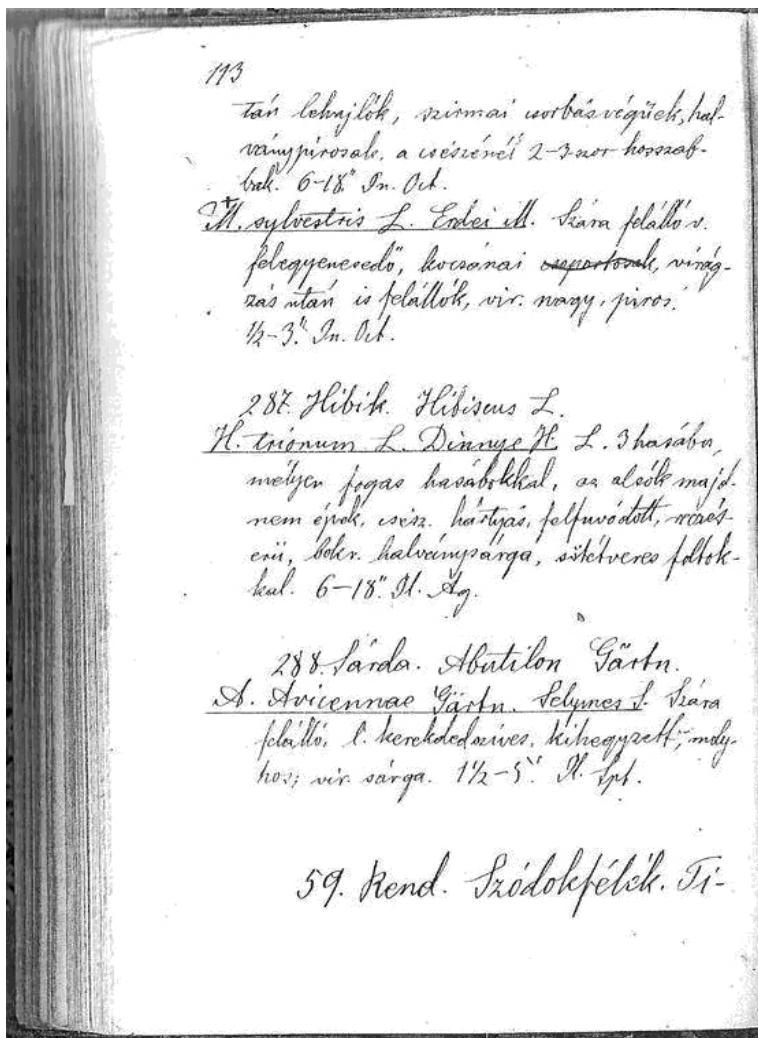 113
tán lehajlók, szirmai csorbás végüek, hal-
ványpirosak, a csészénél 2-3-szor hosszab-
bak. 6-18" Jn. Oct.
M. sylvestris L. Erdei M. Szára felálló v.
felegyenesedő, kocsánai csoportosak, virág-
zás után is felállók, vir. nagy, piros.
1/2-3." Jn. Oct.
287. Hibik. Hibiscus L.
H. trionum L. Dinnye H. L. 3 hasábu,
mélyen fogas hasábokkal, az alsók majd-
nem épek, csész. hártyás, felfuvódott, recés-
erü, bokr. halványsárga, sötétveres foltok-
kal. 6-18." Jl. Ag.
288. Sárda. Abutilon Gärtn.
A. Avicennae Gärtn. Selymes S. Szára
felálló, l. kerekdedszives, kihegyzett, moly-
hos; vir. sárga. 1 1/2-5'. Jl. Spt.
59. Rend. Szádokfélék. Ti-